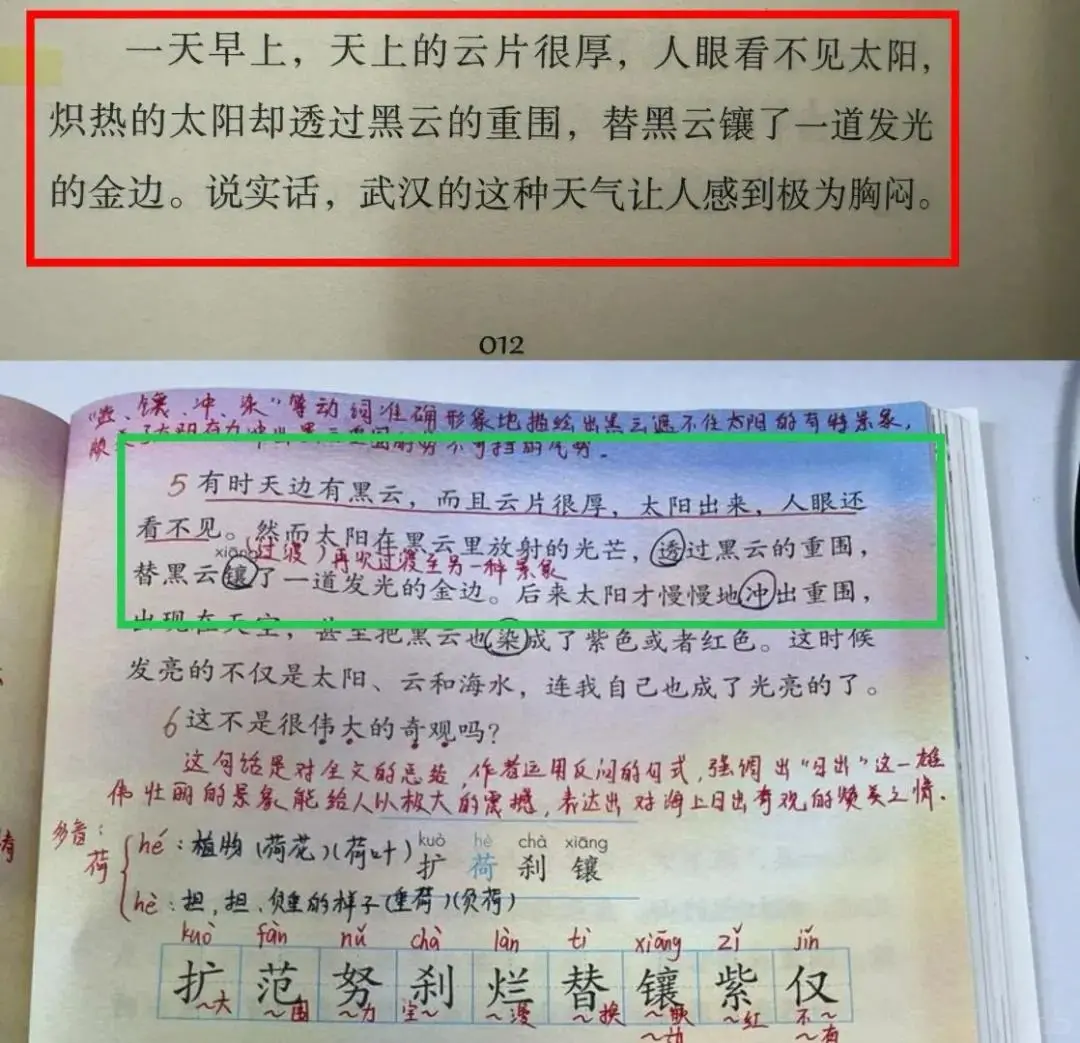 一天早上，天上的云片很厚，人眼看不见太阳，
炽热的太阳却透过黑云的重围，替黑云镶了一道发光
的金边。说实话，武汉的这种天气让人感到极为胸闷。
012
镶、冲、染”等动词准确形象地描绘出黑云遮不住太阳的奇特景象，
5 有时天边有黑云，而且云片很厚，太阳出来，人眼还
看不见。然而太阳在黑云里放射的光芒，透过黑云的重围，
xiāng （过渡）再次过渡至另一种景象
替黑云镶了一道发光的金边。后来太阳才慢慢地冲出重围，
出现在天空，甚至把黑云也染成了紫色或者红色。这时候
发亮的不仅是太阳、云和海水，连我自己也成了光亮的了。
6 这不是很伟大的奇观吗？
这句话是对全文的总结，作者运用反问的句式，强调出“日出”这一雄
伟壮丽的景象能给人以极大的震撼，表达出对海上日出奇观的赞美之情.
多音：
荷
hé：植物（荷花）（荷叶）
kuò hè chà xiāng
扩 荷 刹 镶
hè：担，担、负重的样子（重荷）（负荷）
kuò fàn nǔ chà làn tì xiāng zǐ jǐn
扩 范 努 刹 烂 替 镶 紫 仅
～大 ～围 ～力 宝～ ～漫 ～换 ～嵌 ～红 不～
～有